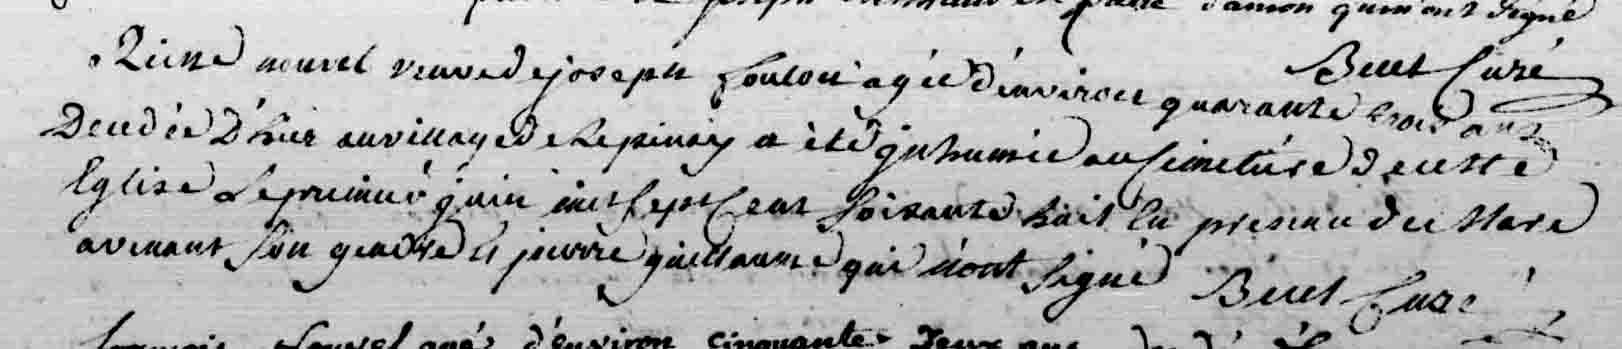 Damon qui n'ont signé
Buet Curé
nouvel veuve de joseph foulon agée d'environ quarante trois ans
Decedée D'hier au village de Lepinay a été jnhumée au Cimetière de cette
Eglise Le premier juin mil sept Cent soixante huit En presence de
avenant son gendre et pierre guillaume qui n'ont signé Buet Curé
françois Nouvel agé d'environ cinquante Deux ans